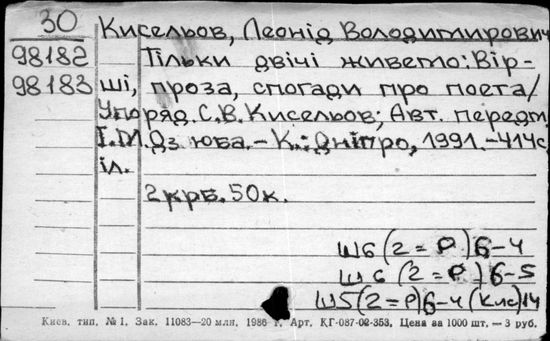 30 Кисельов, Леонід Володимирович
98182 Тільки двічі живемо: Вір-
98183 ші, проза, спогади про поета/
Упоряд. С.В. Кисельов; Авт. передм
І.М. Дзюба. – К.: Дніпро, 1991. – 414с.
іл.
2 крб. 50к.
Ш6 (2=Р) 6-4
Ш6 (2=Р) 6-5
Ш5 (2=Р) 6-4 (Кис) 14
Києв. тип. № 1. Зак. 11083—20 млн. 1986 г. Арт. КГ-087-02-353. Цена за 1000 шт. — 3 руб.